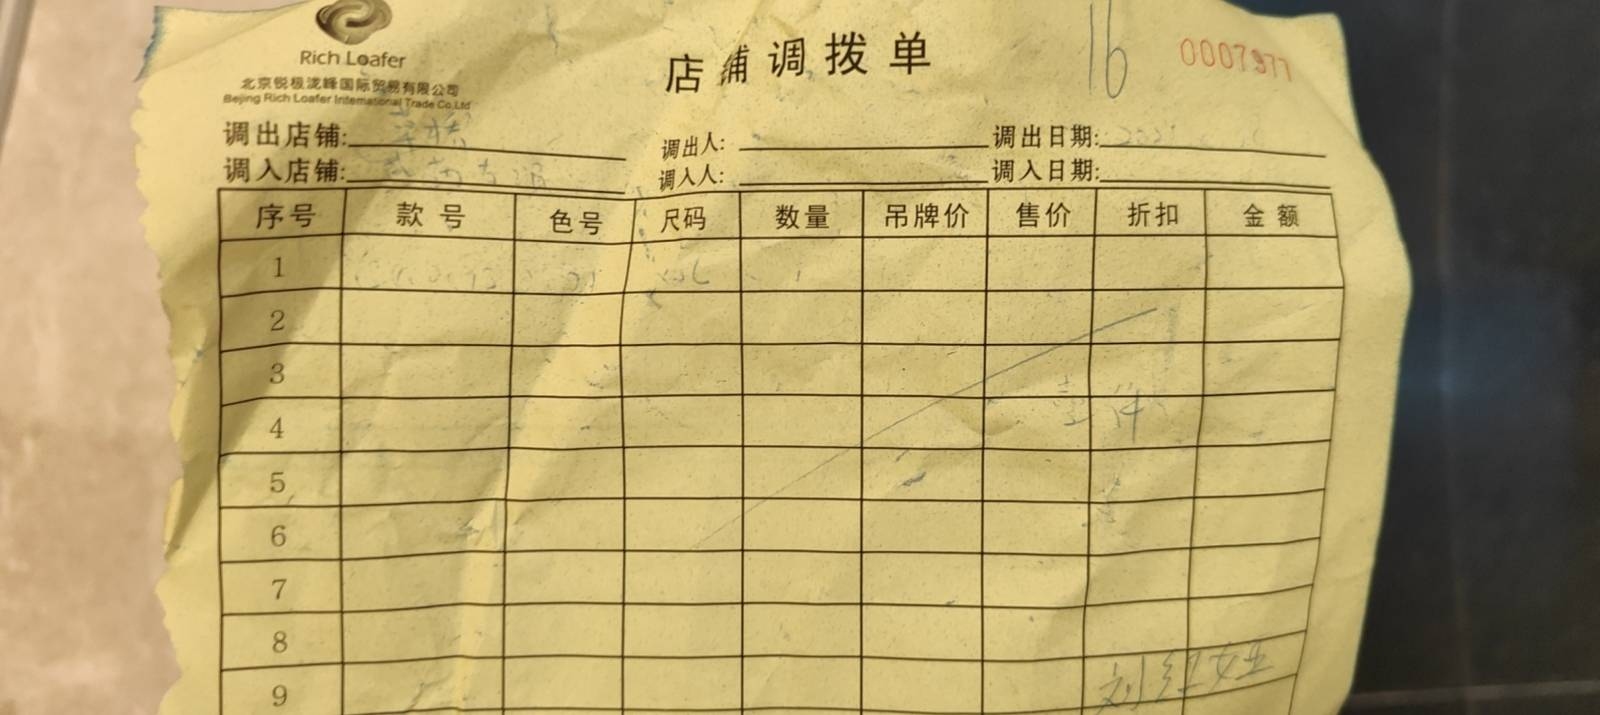 Rich Loafer
北京锐极泷峰国际贸易有限公司
Beijing Rich Loafer International Trade Co.Ltd
店铺调拨单
16
0007977
调出店铺: 调出人: 调出日期:
调入店铺: 调入人: 调入日期:
序号 款号 色号 尺码 数量 吊牌价 售价 折扣 金额
1 1
2
3
4 壹件
5
6
7
8
9 刘红